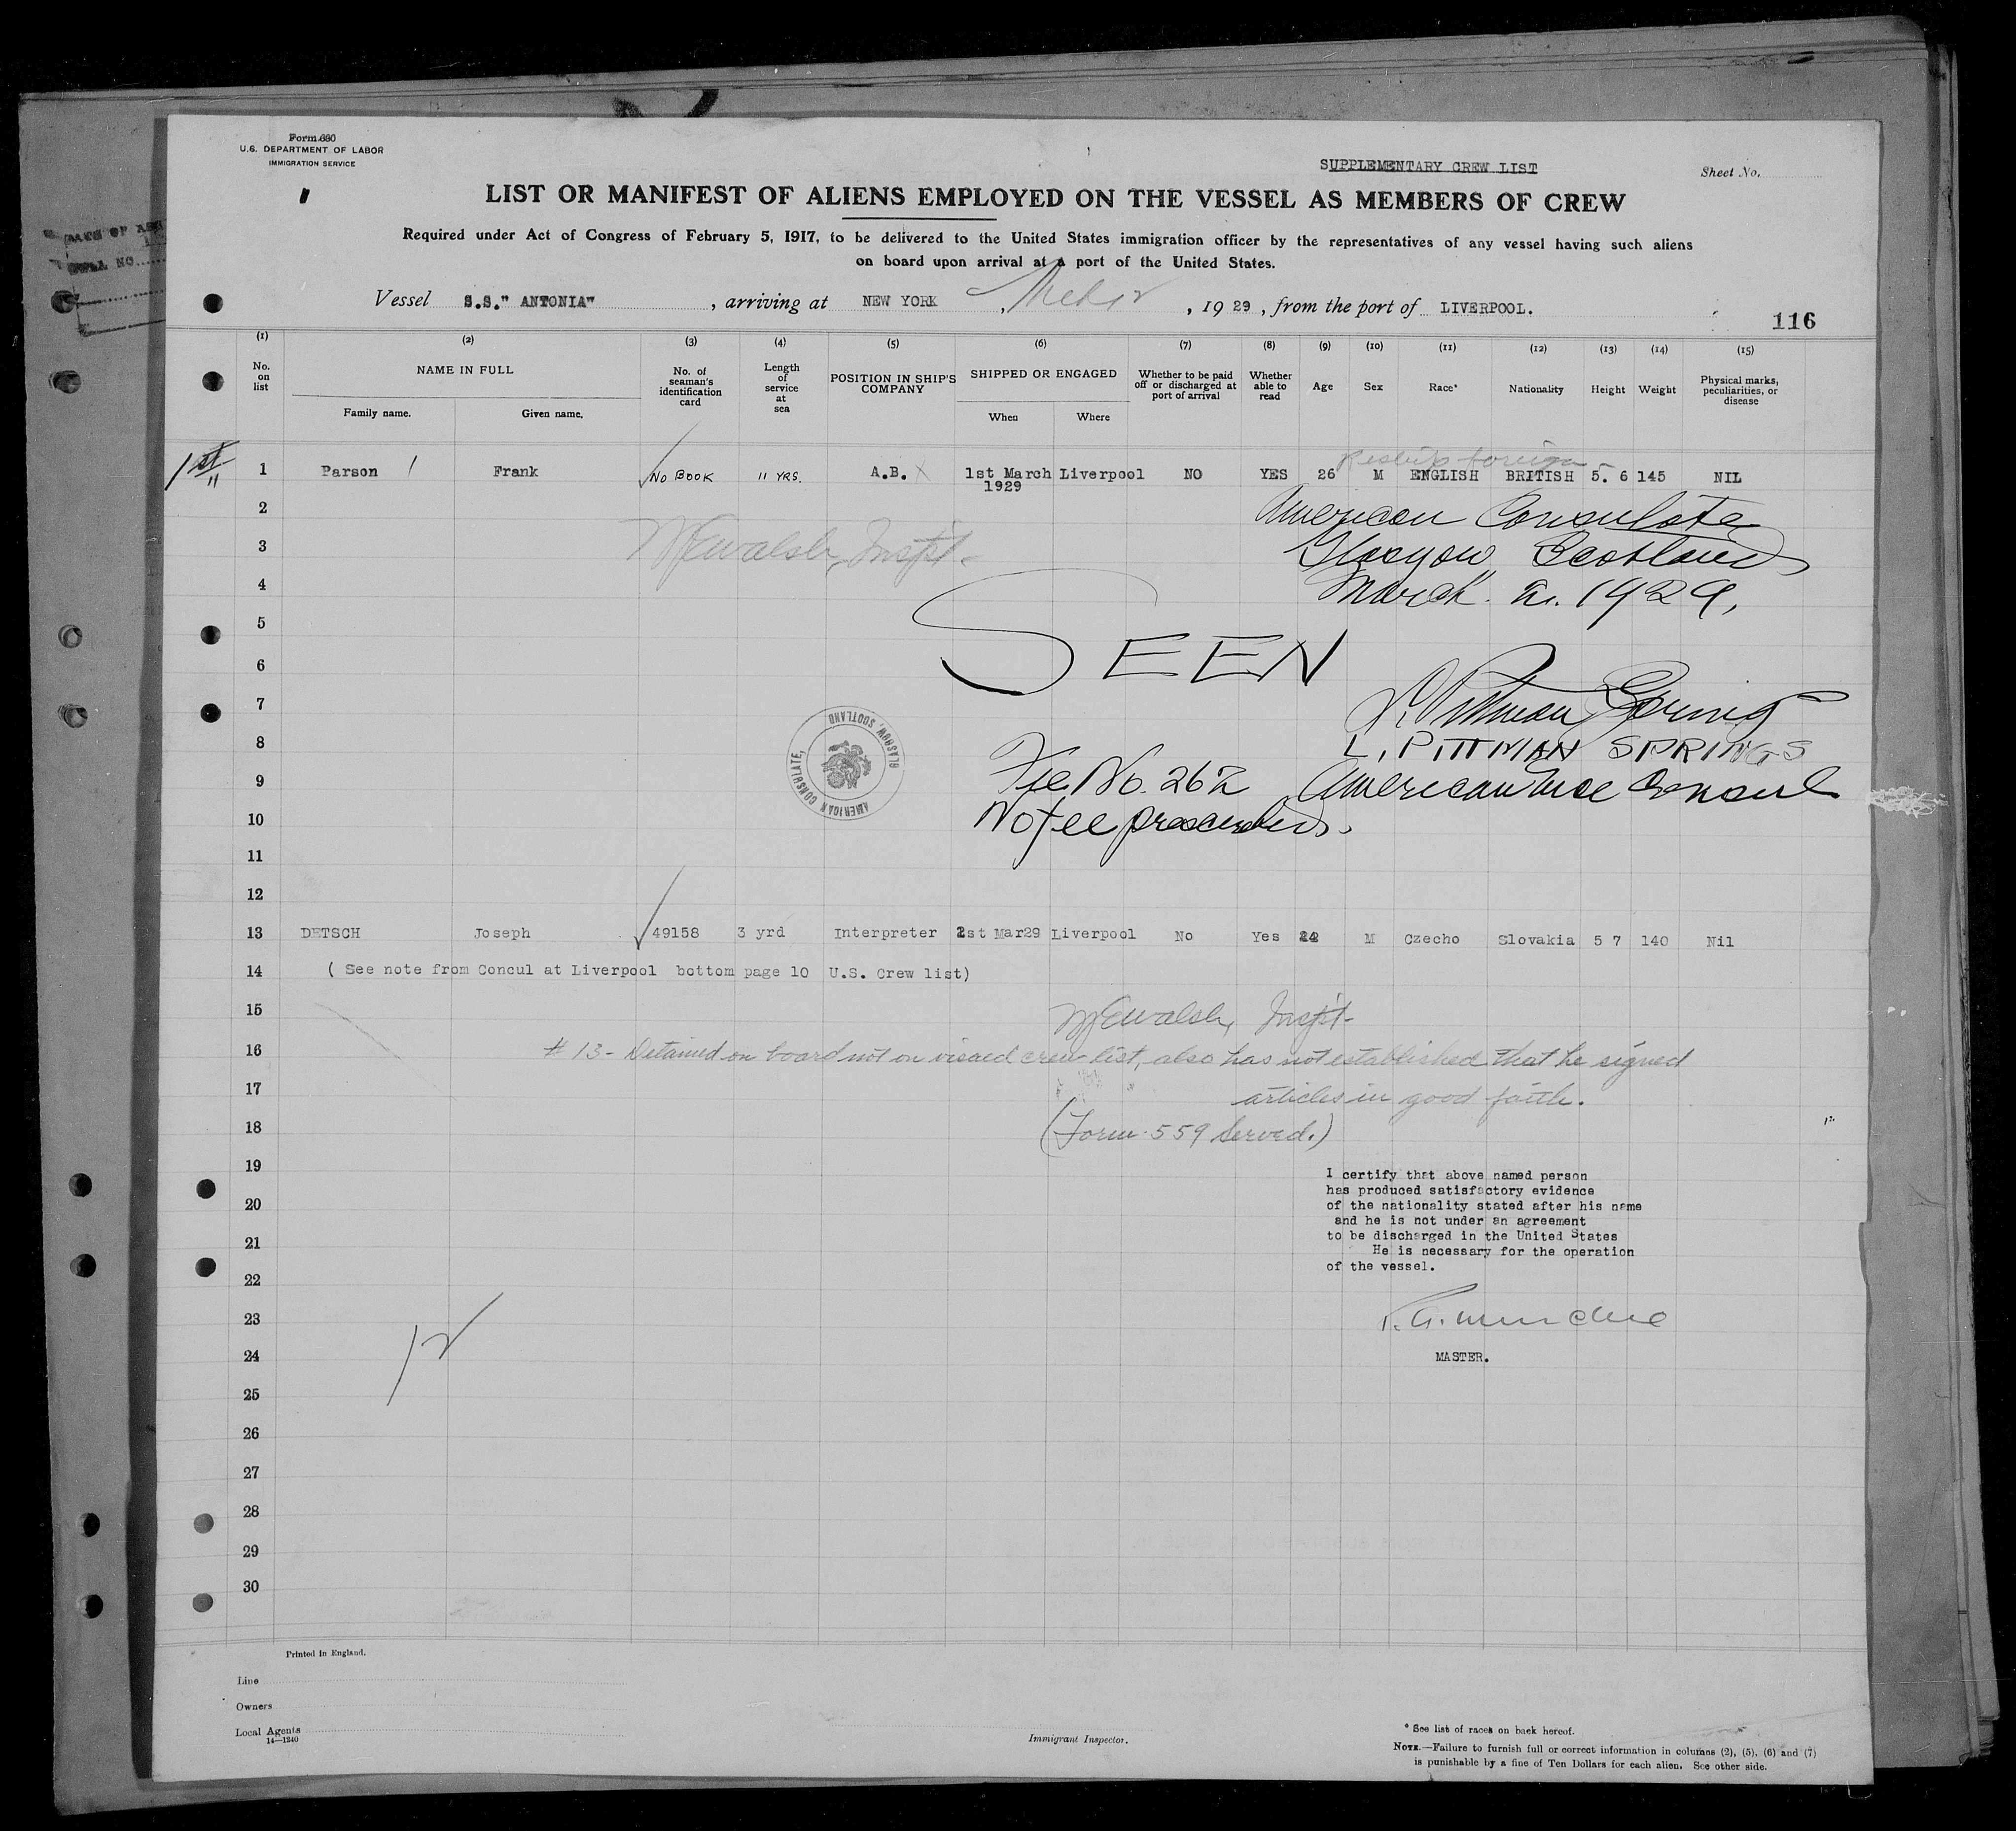 Form 680
U.S. DEPARTMENT OF LABOR
IMMIGRATION SERVICE
SUPPLEMENTARY CREW LIST
Sheet No.
LIST OR MANIFEST OF ALIENS EMPLOYED ON THE VESSEL AS MEMBERS OF CREW
Required under Act of Congress of February 5, 1917, to be delivered to the United States immigration officer by the representatives of any vessel having such aliens
on board upon arrival at a port of the United States.
Vessel S.S." ANTONIA" , arriving at NEW YORK , , 1929 , from the port of LIVERPOOL.
116
(1) (2) (3) (4) (5) (6) (7) (8) (9) (10) (11) (12) (13) (14) (15)
No. on list
NAME IN FULL
Family name. Given name.
No. of seaman's identification card
Length of service at sea
POSITION IN SHIP'S COMPANY
SHIPPED OR ENGAGED
When Where
Whether to be paid off or discharged at port of arrival
Whether able to read
Age
Sex
Race*
Nationality
Height
Weight
Physical marks, peculiarities, or disease
Reship foreign
1st 1 Parson Frank No Book 11 YRS. A.B. 1st March 1929 Liverpool NO YES 26 M ENGLISH BRITISH 5. 6 145 NIL
2 American Consulate
3 Glasgow, Scotland
4 March 2. 1929.
5
SEEN
6
7
8 L. PITTMAN SPRINGS
AMERICAN CONSULATE, GLASGOW, SCOTLAND
9 Fee No. 262 American Vice Consul
10 No fee prescribed.
11
12
13 DETSCH Joseph 49158 3 yrd Interpreter 1st Mar29 Liverpool No Yes M Czecho Slovakia 5 7 140 Nil
14 ( See note from Concul at Liverpool bottom page 10 U.S. Crew list)
15 Walsh, Inspt.
16 # 13 - Detained on board not on visaed crew list, also has not established that he signed
17 articles in good faith.
18 (Form 559 Served.)
19 I certify that above named person
has produced satisfactory evidence
20 of the nationality stated after his name
and he is not under an agreement
21 to be discharged in the United States
He is necessary for the operation
22 of the vessel.
23
24 MASTER.
25
26
27
28
29
30
Printed in England.
Line
Owners
Local Agents
14—1240
Immigrant Inspector.
* See list of races on back hereof.
NOTE.—Failure to furnish full or correct information in columns (2), (5), (6) and (7)
is punishable by a fine of Ten Dollars for each alien. See other side.